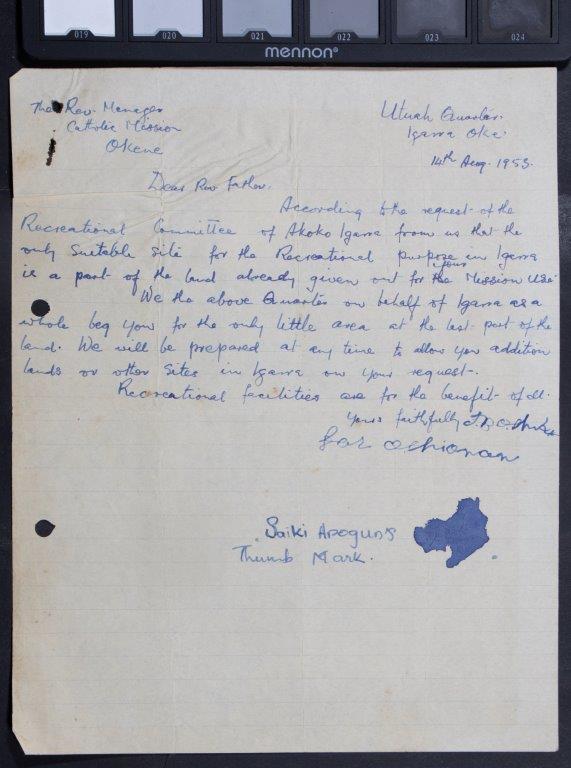 019 020 021 022 023 024
mennon®
The Rev. Manager
Catholic Mission
Okene
Utuah Quarter.
Igarra Oke.
14th Aug. 1953.
Dear Rev Father.
According to the request of the
Recreational Committee of Akoko Igarra from us that the
only suitable site for the Recreational purpose in Igarra
is a part of the land already given out for your Mission use.
We the above Quarter on behalf of Igarra as a
whole beg you for the only little area at the last part of the
land. We will be prepared at any time to allow you addition
lands or other sites in Igarra on your request.
Recreational facilities are for the benefit of all.
Yours faithfully
for
Saiki Apogun's
Thumb Mark.